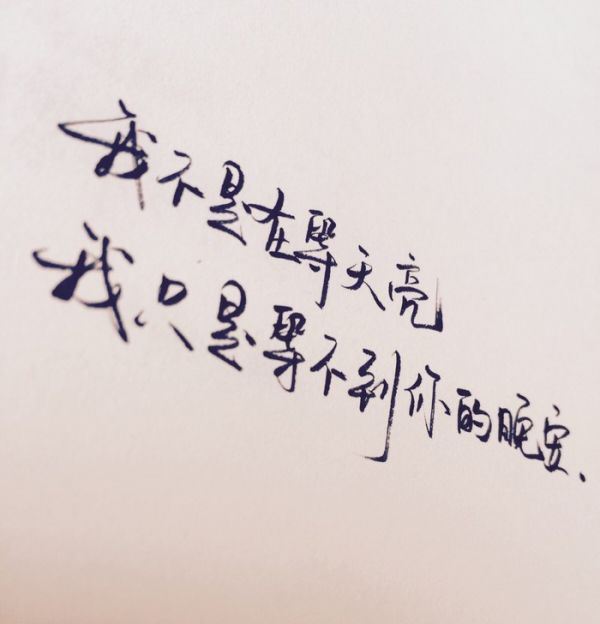 我不是在等天亮
我只是等不到你的晚安.